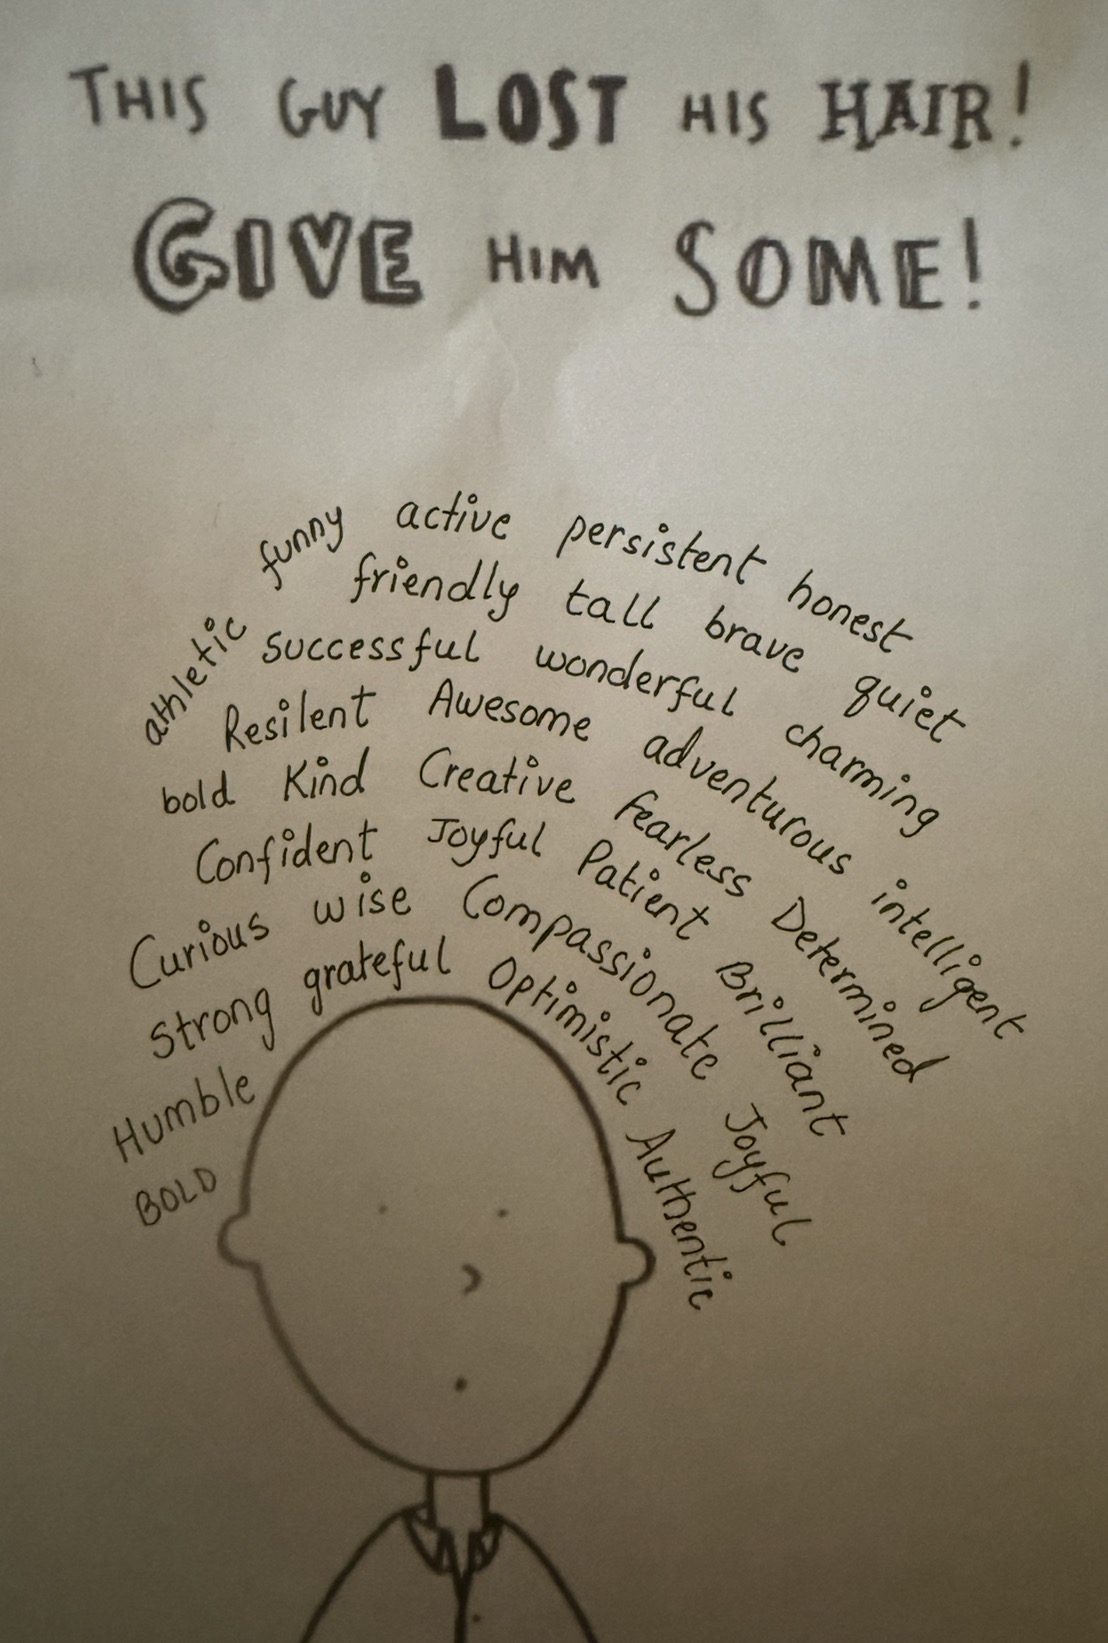 THIS GUY LOST HIS HAIR!
GIVE HIM SOME!
athletic funny active persistent honest
friendly tall brave quiet
successful wonderful charming
Resilent Awesome adventurous intelligent
bold Kind Creative fearless Determined
Confident Joyful Patient Brilliant
Curious wise Compassionate Joyful
Strong grateful Optimistic Authentic
Humble
BOLD